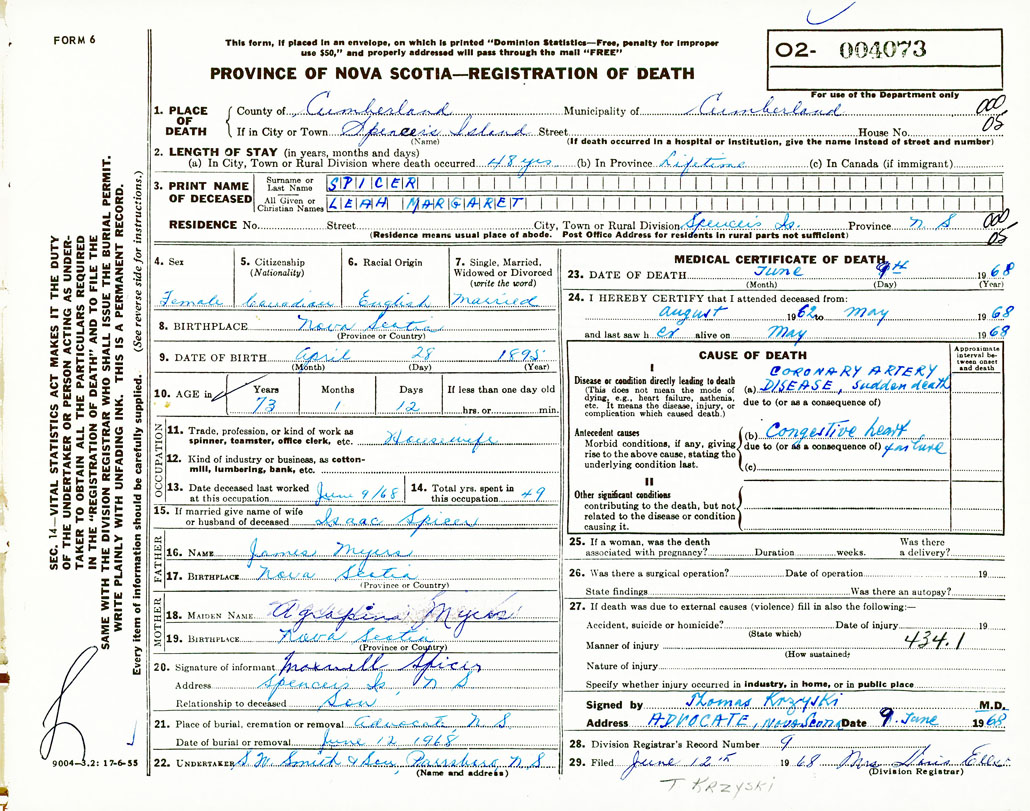 FORM 6
This form, if placed in an envelope, on which is printed "Dominion Statistics—Free, penalty for improper
use $50," and properly addressed will pass through the mail "FREE"
O2- 004073
For use of the Department only
PROVINCE OF NOVA SCOTIA—REGISTRATION OF DEATH
1. PLACE OF DEATH
County of Cumberland Municipality of Cumberland 000
If in City or Town Spencer's Island Street House No. 05
(Name) (If death occurred in a hospital or institution, give the name instead of street and number)
2. LENGTH OF STAY (in years, months and days)
(a) In City, Town or Rural Division where death occurred 48 yrs (b) In Province Lifetime (c) In Canada (if immigrant)
3. PRINT NAME OF DECEASED
Surname or Last Name SPICER
All Given or Christian Names LEAH MARGARET
RESIDENCE No. Street City, Town or Rural Division Spencer's Is. Province N S 000
(Residence means usual place of abode. Post Office Address for residents in rural parts not sufficient) 05
4. Sex Female
5. Citizenship (Nationality) Canadian
6. Racial Origin English
7. Single, Married, Widowed or Divorced (write the word) Married
8. BIRTHPLACE Nova Scotia
(Province or Country)
9. DATE OF BIRTH April 28 1895
(Month) (Day) (Year)
10. AGE in Years 73 Months 1 Days 12 If less than one day old hrs. or min.
OCCUPATION
11. Trade, profession, or kind of work as spinner, teamster, office clerk, etc. Housewife
12. Kind of industry or business, as cotton-mill, lumbering, bank, etc.
13. Date deceased last worked at this occupation June 9/68
14. Total yrs. spent in this occupation 49
15. If married give name of wife or husband of deceased Isaac Spicer
FATHER
16. NAME James Myers
17. BIRTHPLACE Nova Scotia
(Province or Country)
MOTHER
18. MAIDEN NAME Myers
19. BIRTHPLACE Nova Scotia
(Province or Country)
20. Signature of informant Maxwell Spicer
Address Spencer's Is, N S
Relationship to deceased Son
21. Place of burial, cremation or removal Advocate N S
Date of burial or removal June 12 1968
22. UNDERTAKER S.W. Smith & Son, Parrsboro, N.S.
(Name and address)
MEDICAL CERTIFICATE OF DEATH
23. DATE OF DEATH June 9th 1968
(Month) (Day) (Year)
24. I HEREBY CERTIFY that I attended deceased from:
August 1962 to May 1968
and last saw h er alive on May 1968
CAUSE OF DEATH
Approximate interval between onset and death
I
Disease or condition directly leading to death
(This does not mean the mode of dying, e.g., heart failure, asthenia, etc. It means the disease, injury, or complication which caused death.)
(a) CORONARY ARTERY DISEASE, Sudden death
due to (or as a consequence of)
Antecedent causes
Morbid conditions, if any, giving rise to the above cause, stating the underlying condition last.
(b) Congestive heart failure
due to (or as a consequence of)
(c)
II
Other significant conditions
contributing to the death, but not related to the disease or condition causing it.
25. If a woman, was the death associated with pregnancy? Duration weeks. Was there a delivery?
26. Was there a surgical operation? Date of operation 19
State findings Was there an autopsy?
27. If death was due to external causes (violence) fill in also the following:—
Accident, suicide or homicide? Date of injury 19
(State which)
Manner of injury 434.1
(How sustained)
Nature of injury
Specify whether injury occurred in industry, in home, or in public place
Signed by Thomas Krzyski M.D.
Address ADVOCATE, Nova Scotia Date 9 June 1968
28. Division Registrar's Record Number 9
29. Filed June 12th 1968 Mrs Doris
(Division Registrar)
T KRZYSKI
SEC. 14—VITAL STATISTICS ACT MAKES IT THE DUTY
OF THE UNDERTAKER OR PERSON ACTING AS UNDER-
TAKER TO OBTAIN ALL THE PARTICULARS REQUIRED
IN THE "REGISTRATION OF DEATH" AND TO FILE THE
SAME WITH THE DIVISION REGISTRAR WHO SHALL ISSUE THE BURIAL PERMIT.
WRITE PLAINLY WITH UNFADING INK. THIS IS A PERMANENT RECORD.
Every item of information should be carefully supplied. (See reverse side for instructions.)
9004-3.2: 17-6-55